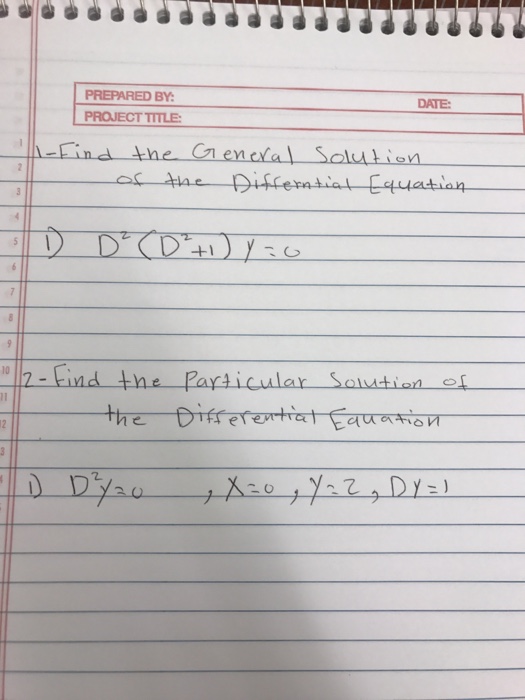 PREPARED BY:
DATE:
PROJECT TITLE:
1-Find the General Solution
of the Differntial Equation
1) D²(D²+1) y=0
2-Find the Particular Solution of
the Differential Equation
1) D²y=0 , X=0, y=2, Dy=1
1
2
3
4
5
6
7
8
9
10
11